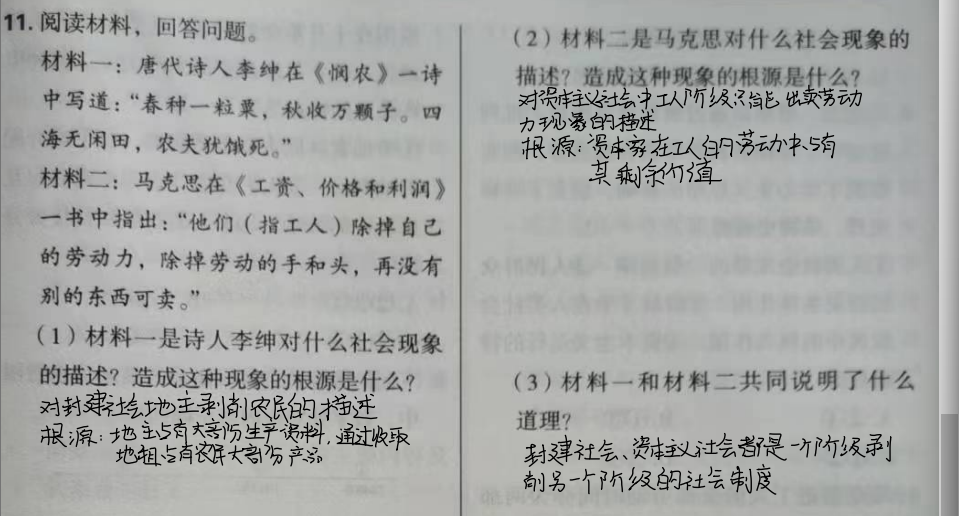 11. 阅读材料，回答问题。
材料一：唐代诗人李绅在《悯农》一诗
中写道：“春种一粒粟，秋收万颗子。四
海无闲田，农夫犹饿死。”
材料二：马克思在《工资、价格和利润》
一书中指出：“他们（指工人）除掉自己
的劳动力，除掉劳动的手和头，再没有
别的东西可卖。”
（1）材料一是诗人李绅对什么社会现象
的描述？造成这种现象的根源是什么？
对封建社会地主剥削农民的描述
根源：地主占有大部分生产资料，通过收取
地租占有农民大部分产品
（2）材料二是马克思对什么社会现象的
描述？造成这种现象的根源是什么？
对资本主义社会中工人阶级只能出卖劳动
力现象的描述
根源：资本家在工人的劳动中占有
其剩余价值
（3）材料一和材料二共同说明了什么
道理？
封建社会、资本主义社会都是一个阶级剥
削另一个阶级的社会制度